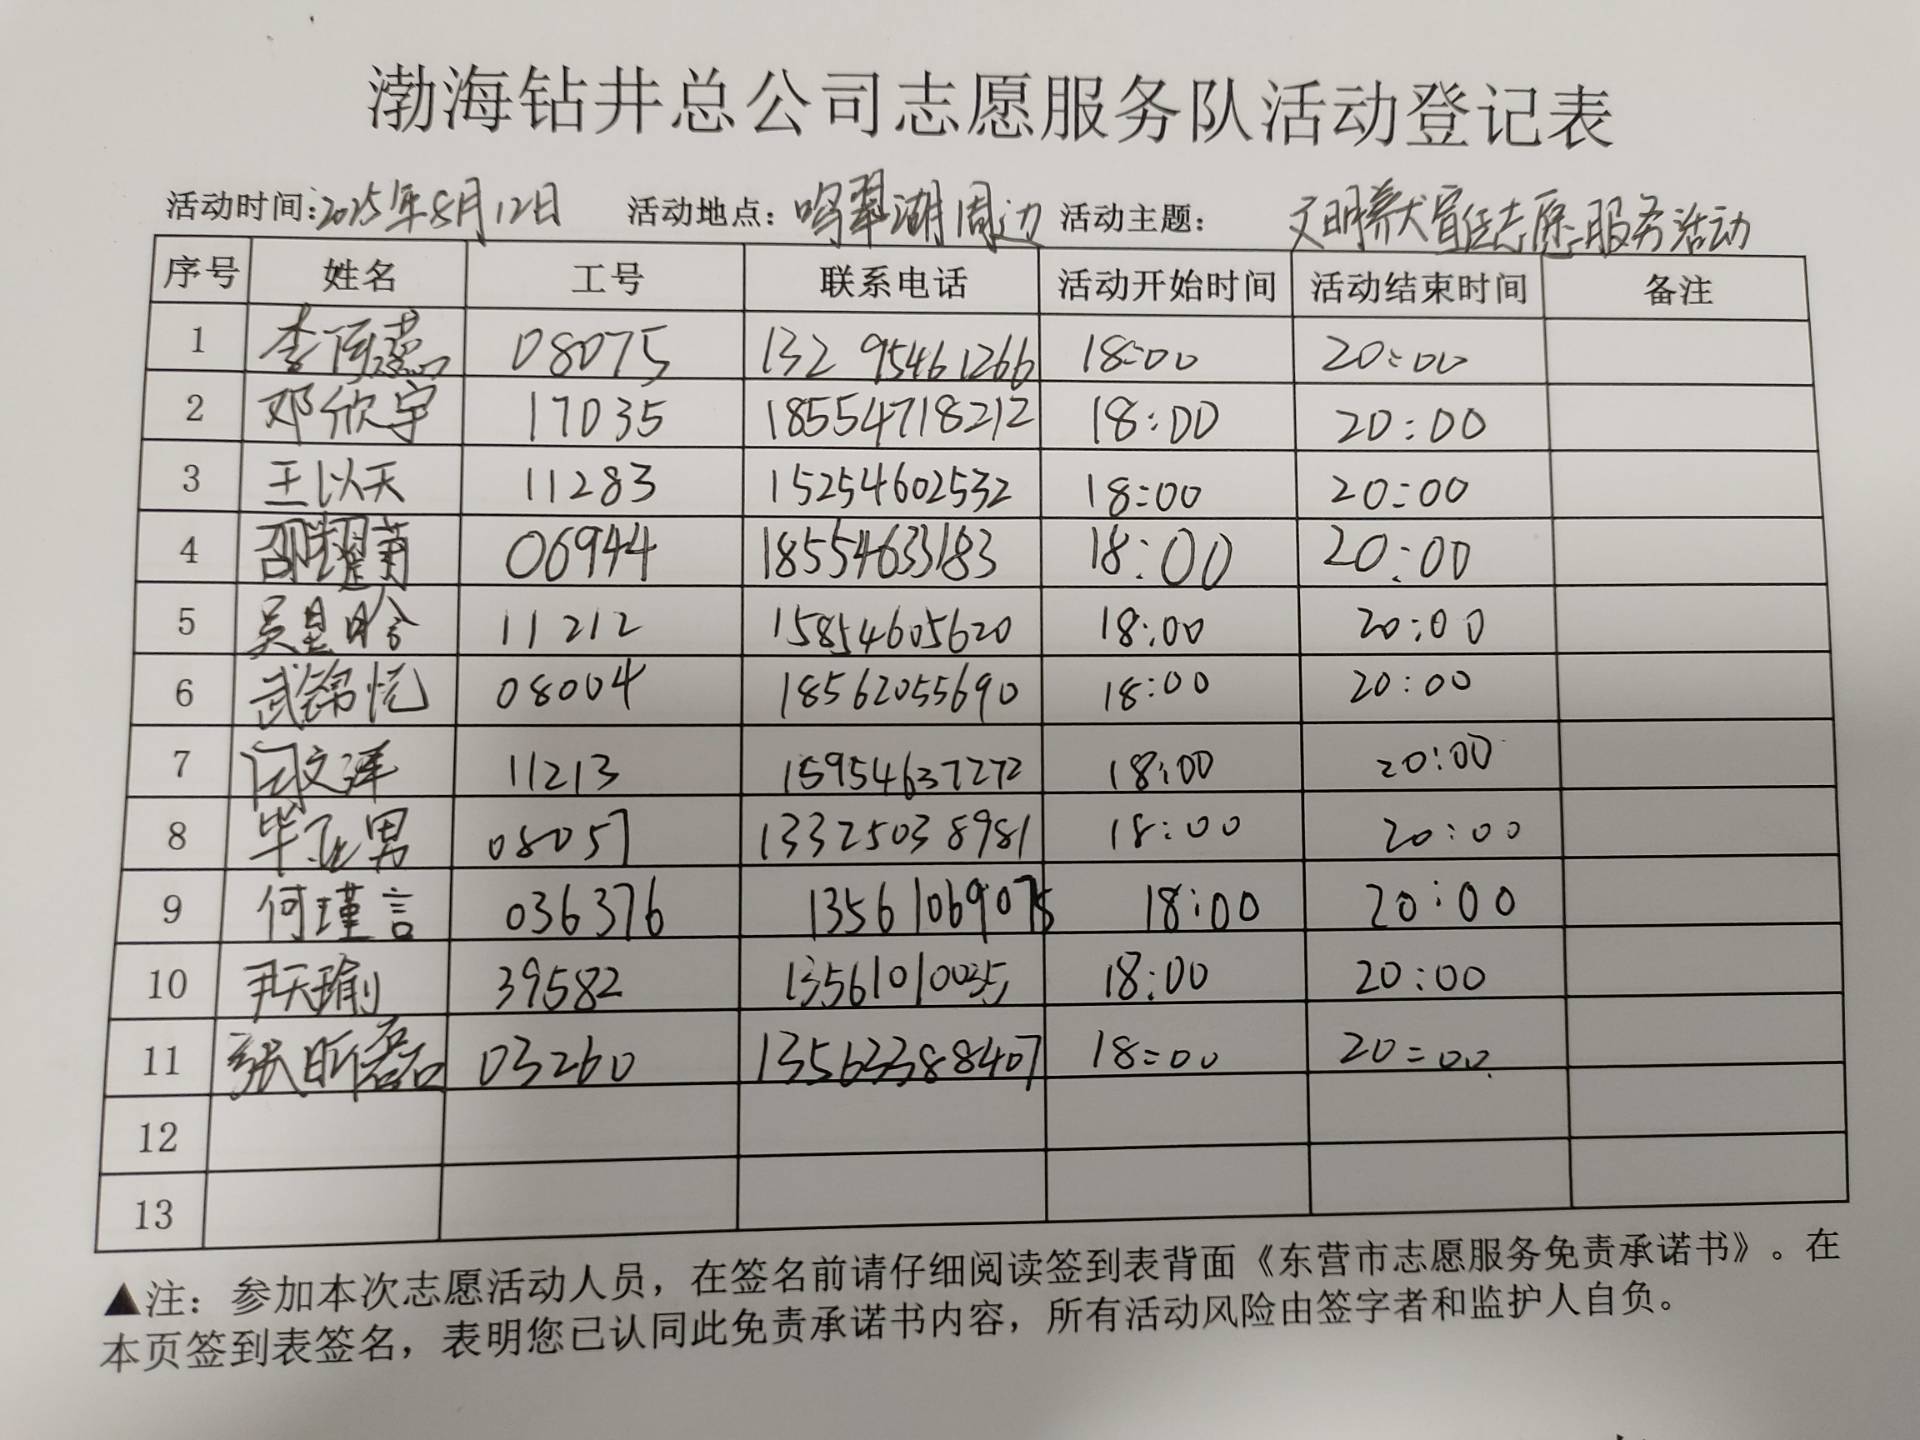 渤海钻井总公司志愿服务队活动登记表
活动时间:2025年8月12日 活动地点:鸣翠湖周边 活动主题: 文明养犬宣传志愿服务活动
序号 姓名 工号 联系电话 活动开始时间 活动结束时间 备注
1 李 08075 132 95461266 18:00 20:00
2 邓欣宇 17035 18554718212 18:00 20:00
3 王以天 11283 15254602532 18:00 20:00
4 邵耀萳 06944 18554633183 18:00 20:00
5 吴昱晗 11212 15854605620 18:00 20:00
6 武锦忆 08004 18562055690 18:00 20:00
7 闫文泽 11213 15954637272 18:00 20:00
8 毕亚男 08057 13325038981 18:00 20:00
9 何瑾言 036376 13561069075 18:00 20:00
10 尹天瑜 39582 13561010035 18:00 20:00
11 张昕磊 03260 13563388407 18:00 20:00
12
13
▲注：参加本次志愿活动人员，在签名前请仔细阅读签到表背面《东营市志愿服务免责承诺书》。在
本页签到表签名，表明您已认同此免责承诺书内容，所有活动风险由签字者和监护人自负。